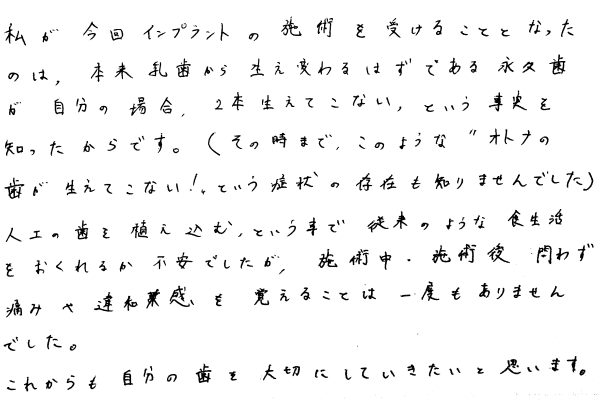 私が今回インプラントの施術を受けることとなった
のは、本来乳歯から生え変わるはずである永久歯
が自分の場合、2本生えてこない、という事実を
知ったからです。(その時まで、このような"オトナの
歯が生えてこない!"という症状の存在も知りませんでした)
人工の歯を植え込む、という事で従来のような食生活
をおくれるか不安でしたが、施術中・施術後問わず
痛みや違和感を覚えることは一度もありません
でした。
これからも自分の歯を大切にしていきたいと思います。